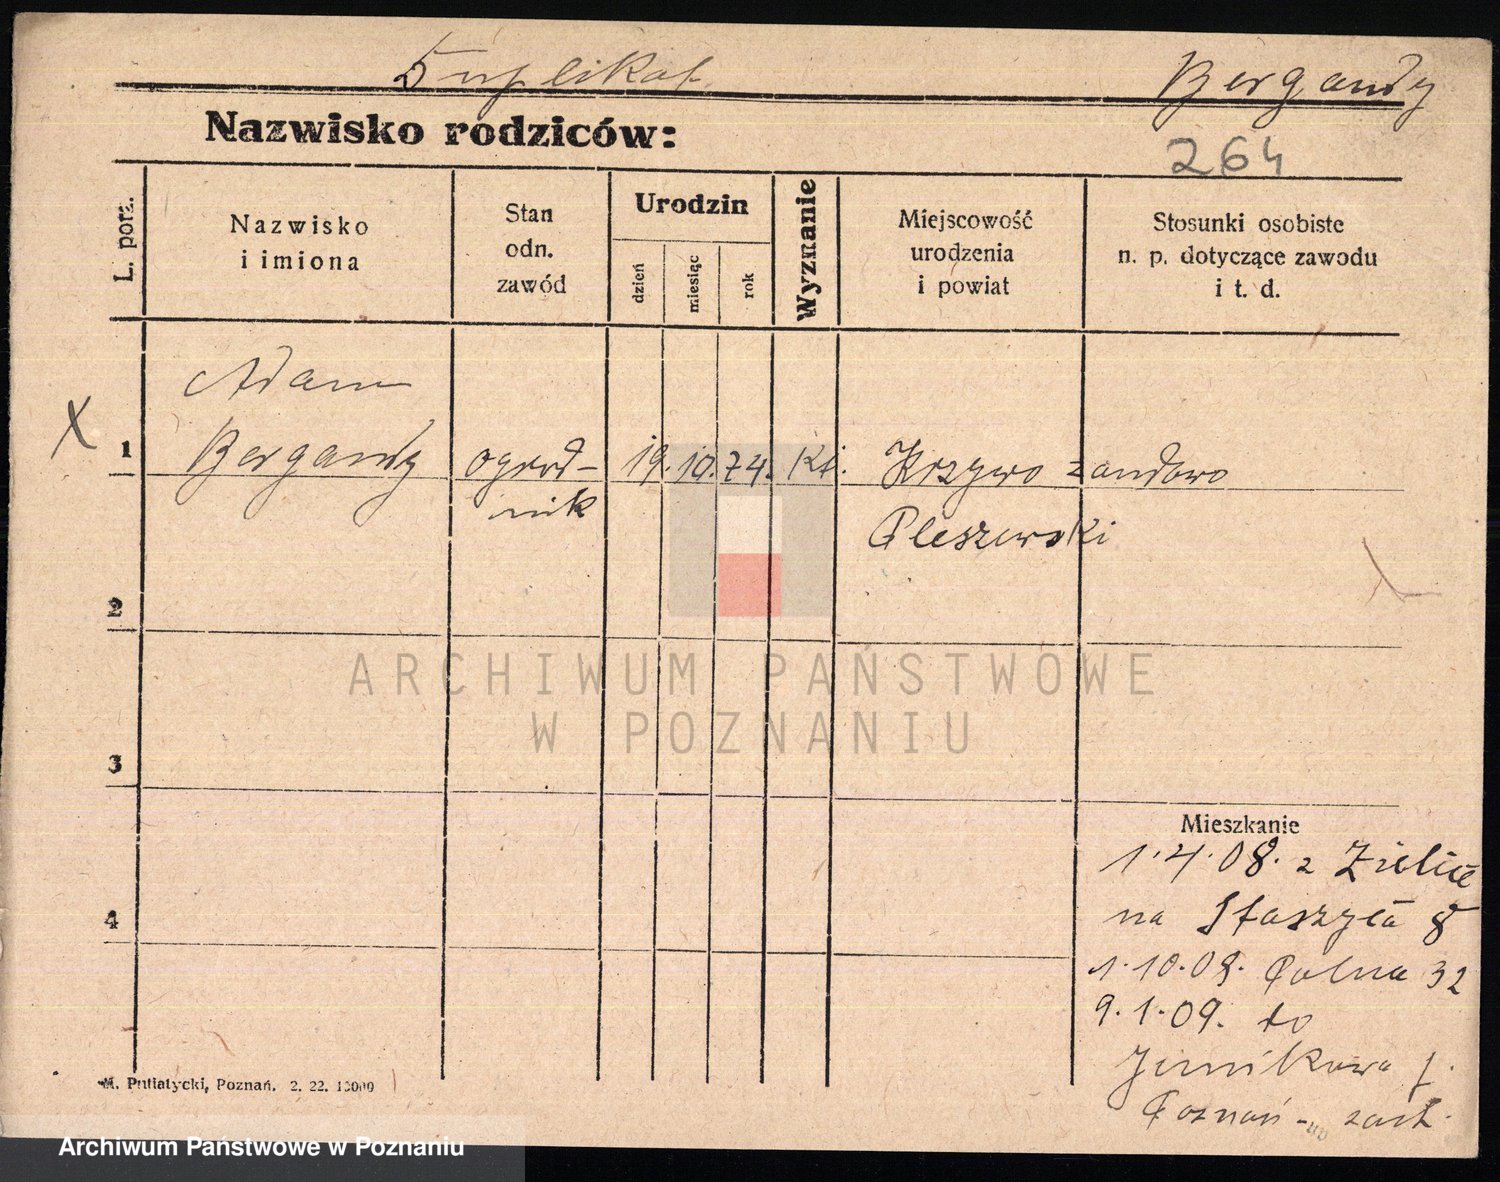 Duplikat.
Bergandy
Nazwisko rodziców:
264
L. porz.
Nazwisko
i imiona
Stan
odn.
zawód
Urodzin
dzień
miesiąc
rok
Wyznanie
Miejscowość
urodzenia
i powiat
Stosunki osobiste
n. p. dotyczące zawodu
i t. d.
X
1
Adam
Bergandy
ogrod-
nik
19. 10. 74.
Kt.
Krzywosandowo
Pleszewski
2
3
4
ARCHIWUM PAŃSTWOWE
W POZNANIU
Mieszkanie
1.4.08. z
na Staszyca 8
1.10.08. Polna 32
9.1.09. do
Junikowa
Poznań - zach.
M. Putiatycki, Poznań. 2. 22. 10000
Archiwum Państwowe w Poznaniu